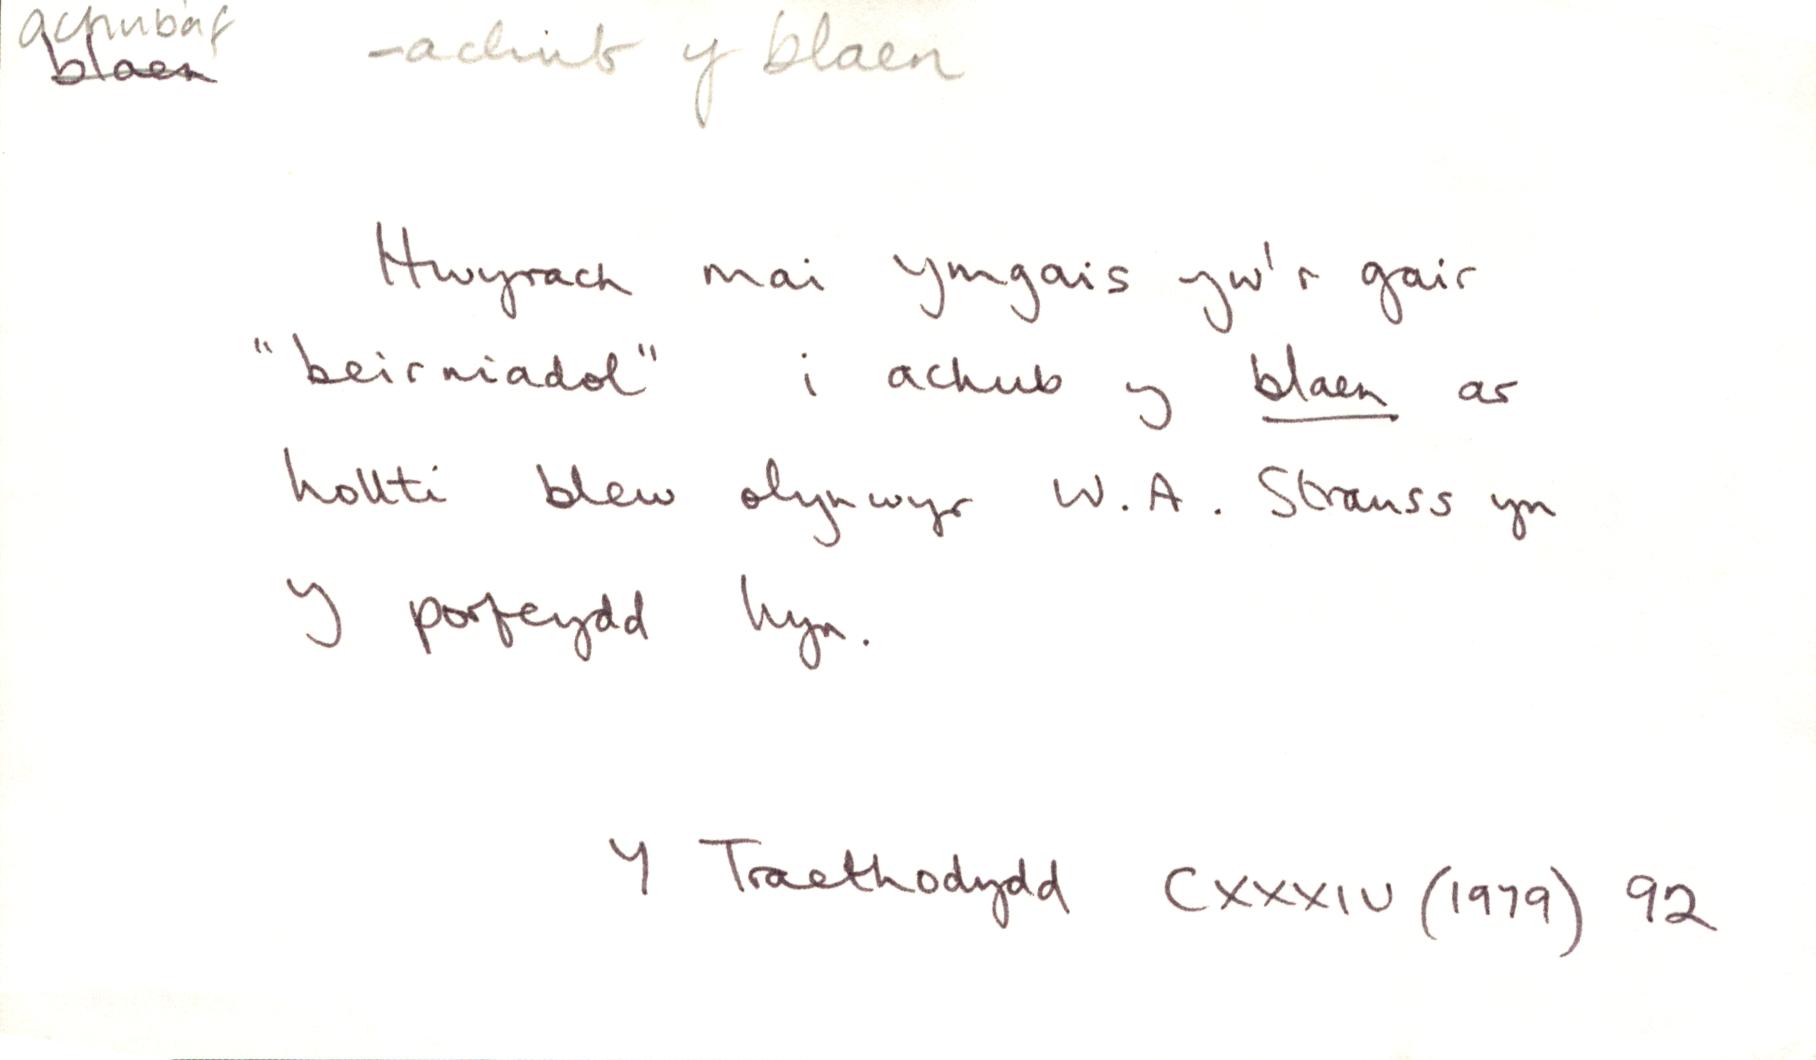 achubaf
blaen -achub y blaen
Hwyrach mai ymgais yw'r gair
"beirniadol" i achub y blaen ar
hollti blew olynwyr W.A. Strauss yn
y porfeydd hyn.
Y Traethodydd CXXXIV (1979) 92